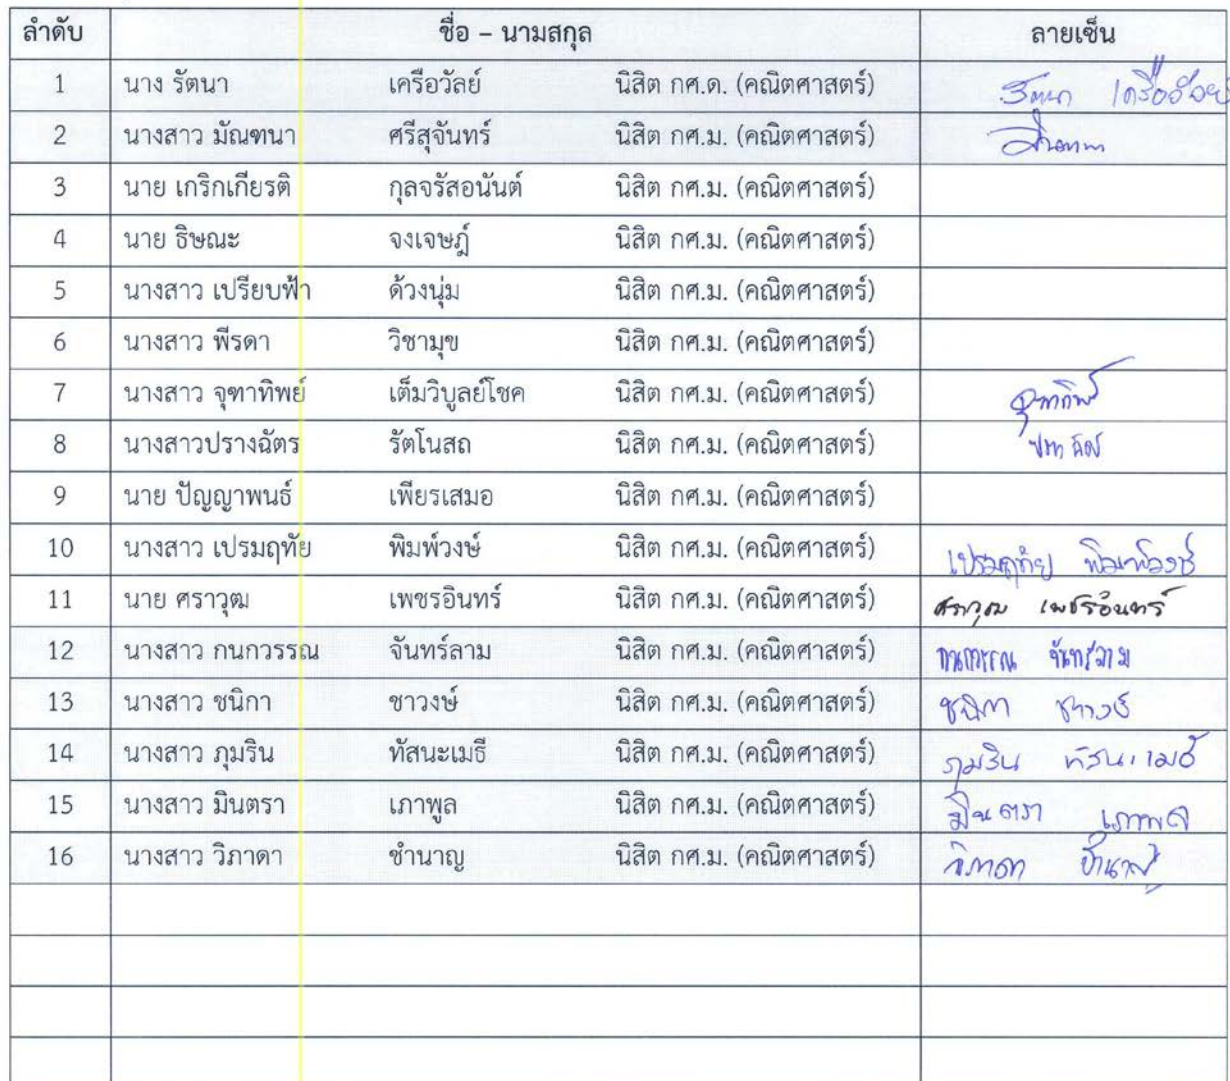 ลำดับ ชื่อ – นามสกุล ลายเซ็น
1 นาง รัตนา เครือวัลย์ นิสิต กศ.ด. (คณิตศาสตร์) รัตนา เครือวัลย์
2 นางสาว มัณฑนา ศรีสุจันทร์ นิสิต กศ.ม. (คณิตศาสตร์)
3 นาย เกริกเกียรติ กุลจรัสอนันต์ นิสิต กศ.ม. (คณิตศาสตร์)
4 นาย ธิษณะ จงเจษฎ์ นิสิต กศ.ม. (คณิตศาสตร์)
5 นางสาว เปรียบฟ้า ด้วงนุ่ม นิสิต กศ.ม. (คณิตศาสตร์)
6 นางสาว พีรดา วิชามุข นิสิต กศ.ม. (คณิตศาสตร์)
7 นางสาว จุฑาทิพย์ เต็มวิบูลย์โชค นิสิต กศ.ม. (คณิตศาสตร์)
8 นางสาวปรางฉัตร รัตโนสถ นิสิต กศ.ม. (คณิตศาสตร์)
9 นาย ปัญญาพนธ์ เพียรเสมอ นิสิต กศ.ม. (คณิตศาสตร์)
10 นางสาว เปรมฤทัย พิมพ์วงษ์ นิสิต กศ.ม. (คณิตศาสตร์) เปรมฤทัย พิมพ์วงษ์
11 นาย ศราวุฒ เพชรอินทร์ นิสิต กศ.ม. (คณิตศาสตร์) ศราวุฒ เพชรอินทร์
12 นางสาว กนกวรรณ จันทร์ลาม นิสิต กศ.ม. (คณิตศาสตร์) กนกวรรณ จันทร์ลาม
13 นางสาว ชนิกา ชาวงษ์ นิสิต กศ.ม. (คณิตศาสตร์) ชนิกา ชาวงษ์
14 นางสาว ภุมริน ทัสนะเมธี นิสิต กศ.ม. (คณิตศาสตร์) ภุมริน ทัสนะเมธี
15 นางสาว มินตรา เภาพูล นิสิต กศ.ม. (คณิตศาสตร์) มินตรา เภาพูล
16 นางสาว วิภาดา ชำนาญ นิสิต กศ.ม. (คณิตศาสตร์) วิภาดา ชำนาญ